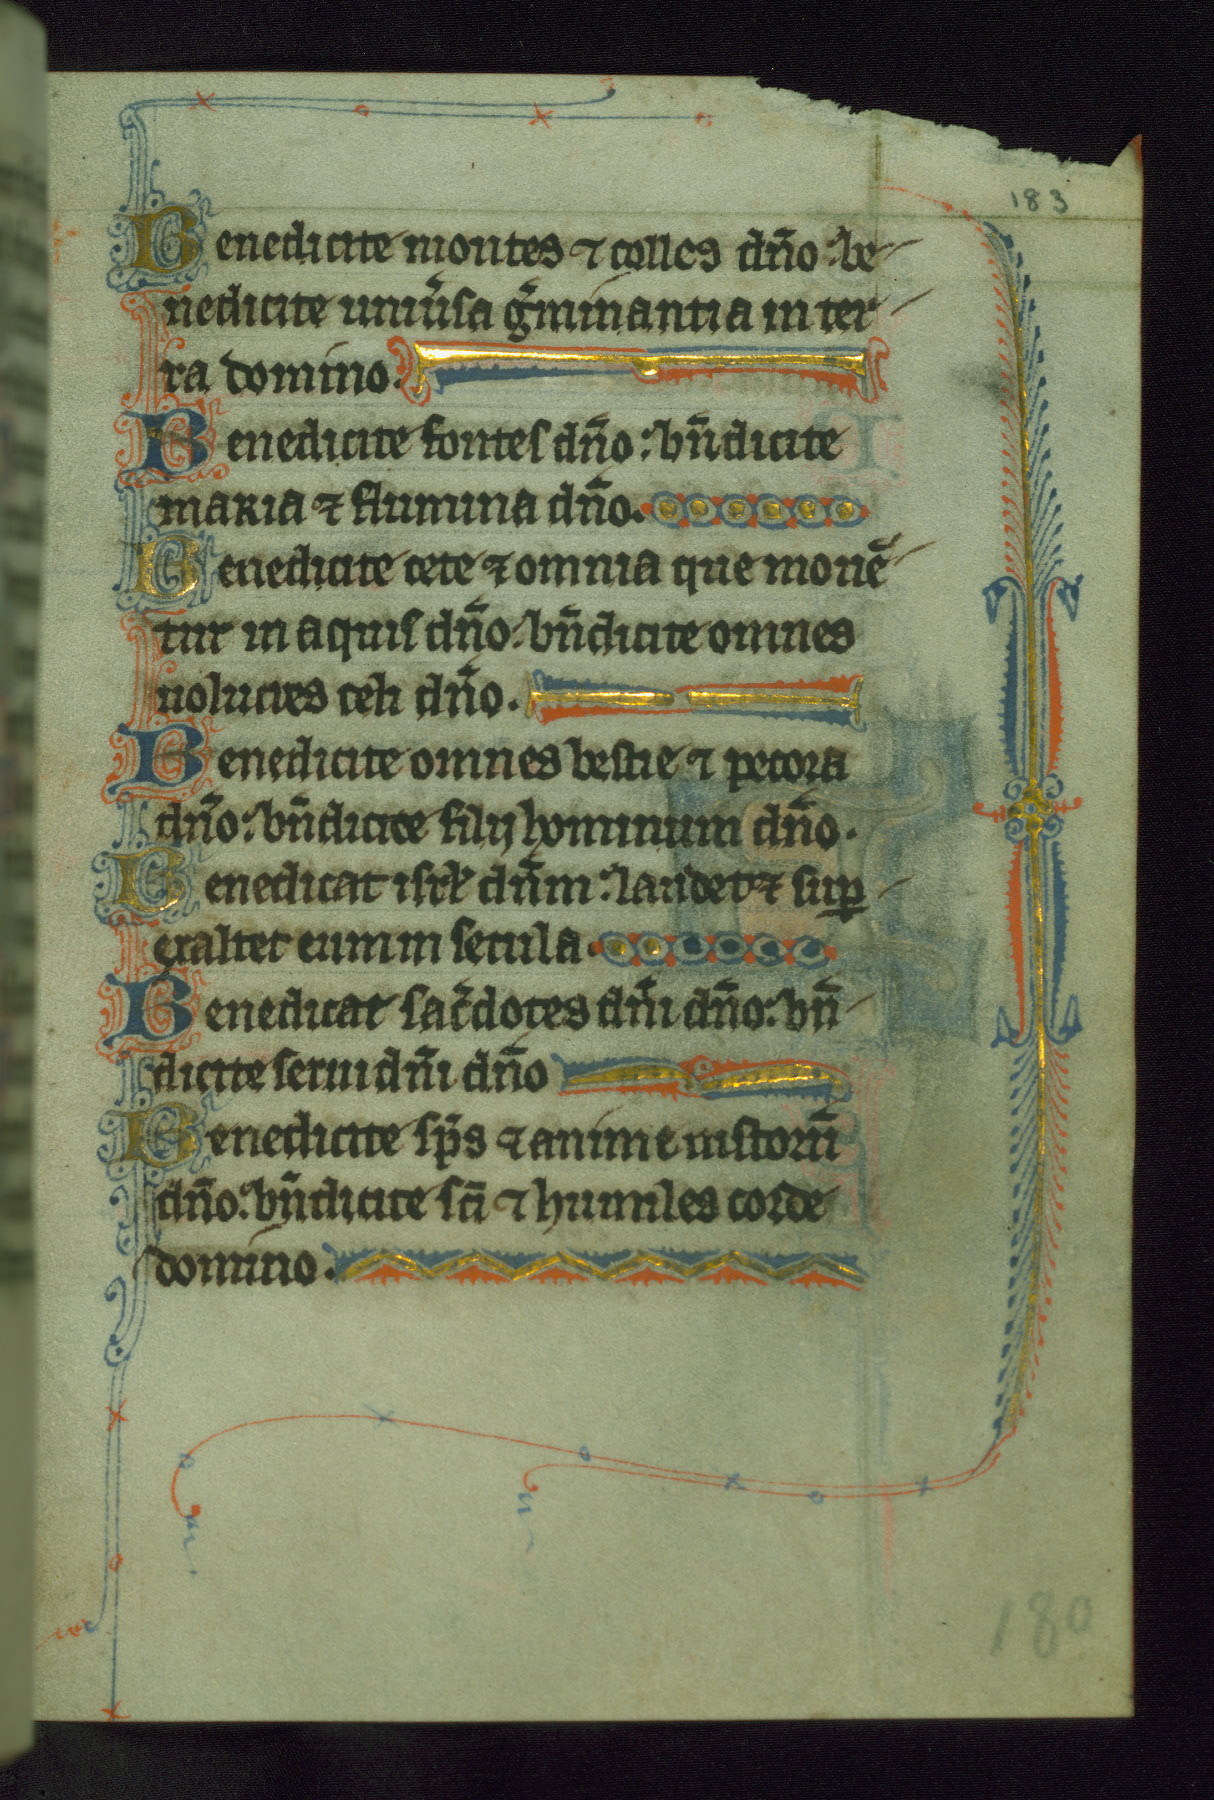 183
Benedicite montes ⁊ colles dn̄o : be
nedicite uniu̾sa g̾minantia in ter
ra domino.
Benedicite fontes dn̄o : bn̄dicite
maria ⁊ flumina dn̄o.
Benedicite cete ⁊ omnia que mouē
tur in aquis dn̄o : bn̄dicite omnes
uolucres celi dn̄o.
Benedicite omnes bestie ⁊ pecora
dn̄o : bn̄dicite filij hominum dn̄o.
Benedicat isrl̄ dn̄m : laudet ⁊ suꝑ
exaltet eum in secula.
Benedicat sac̾dotes dn̄i dn̄o : bn̄
dicite serui dn̄i dn̄o
Benedicite sp̄s ⁊ anime iustorū
dn̄o : bn̄dicite sc̄i ⁊ humiles corde
domino.
180